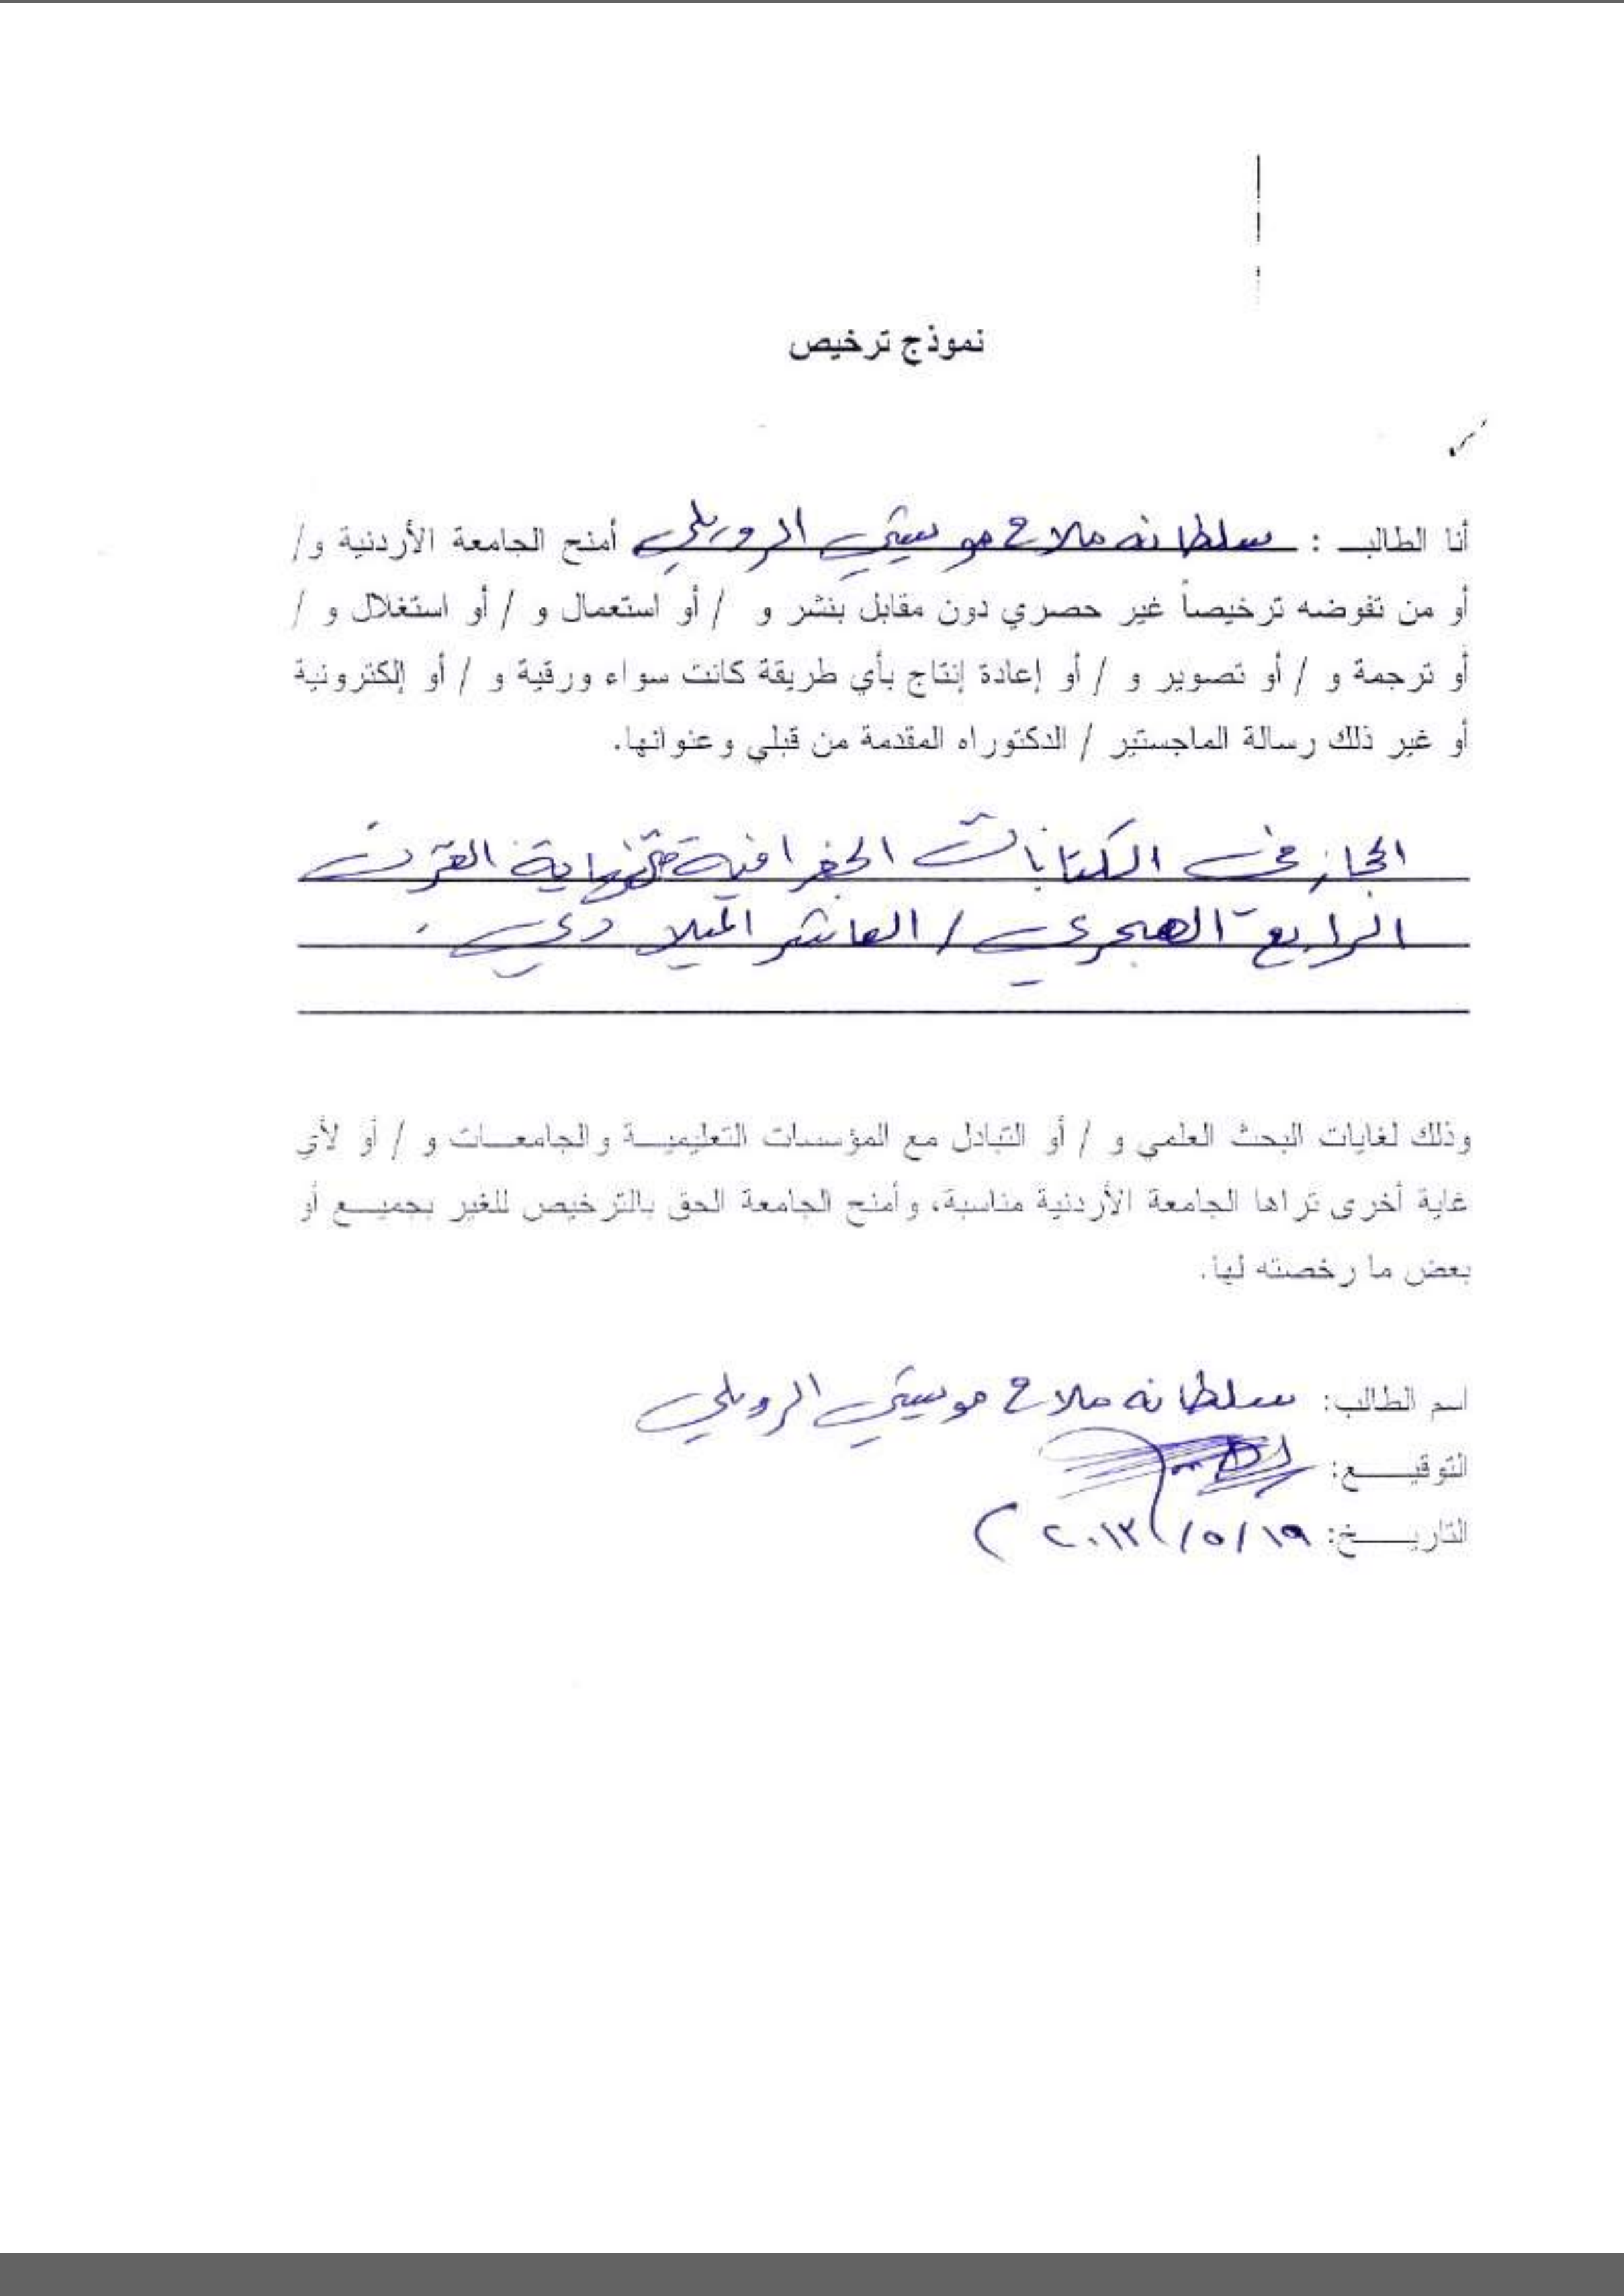 نموذج ترخيص
أنا الطالب : سلطانه ملاح مويشي الرويلي أمنح الجامعة الأردنية و/
أو من تفوضه ترخيصاً غير حصري دون مقابل بنشر و / أو استعمال و / أو استغلال و /
أو ترجمة و / أو تصوير و / أو إعادة إنتاج بأي طريقة كانت سواء ورقية و / أو إلكترونية
أو غير ذلك رسالة الماجستير / الدكتوراه المقدمة من قبلي وعنوانها.
الحجاز في الكتابات الجغرافية حتى نهاية القرن
الرابع الهجري / العاشر الميلادي .
وذلك لغايات البحث العلمي و / أو التبادل مع المؤسسات التعليمية والجامعات و / أو لأي
غاية أخرى تراها الجامعة الأردنية مناسبة، وأمنح الجامعة الحق بالترخيص للغير بجميع أو
بعض ما رخصته لها.
اسم الطالب: سلطانه ملاح مويشي الرويلي
التوقيع:
التاريخ: ١٩/٥/٢٠١٣